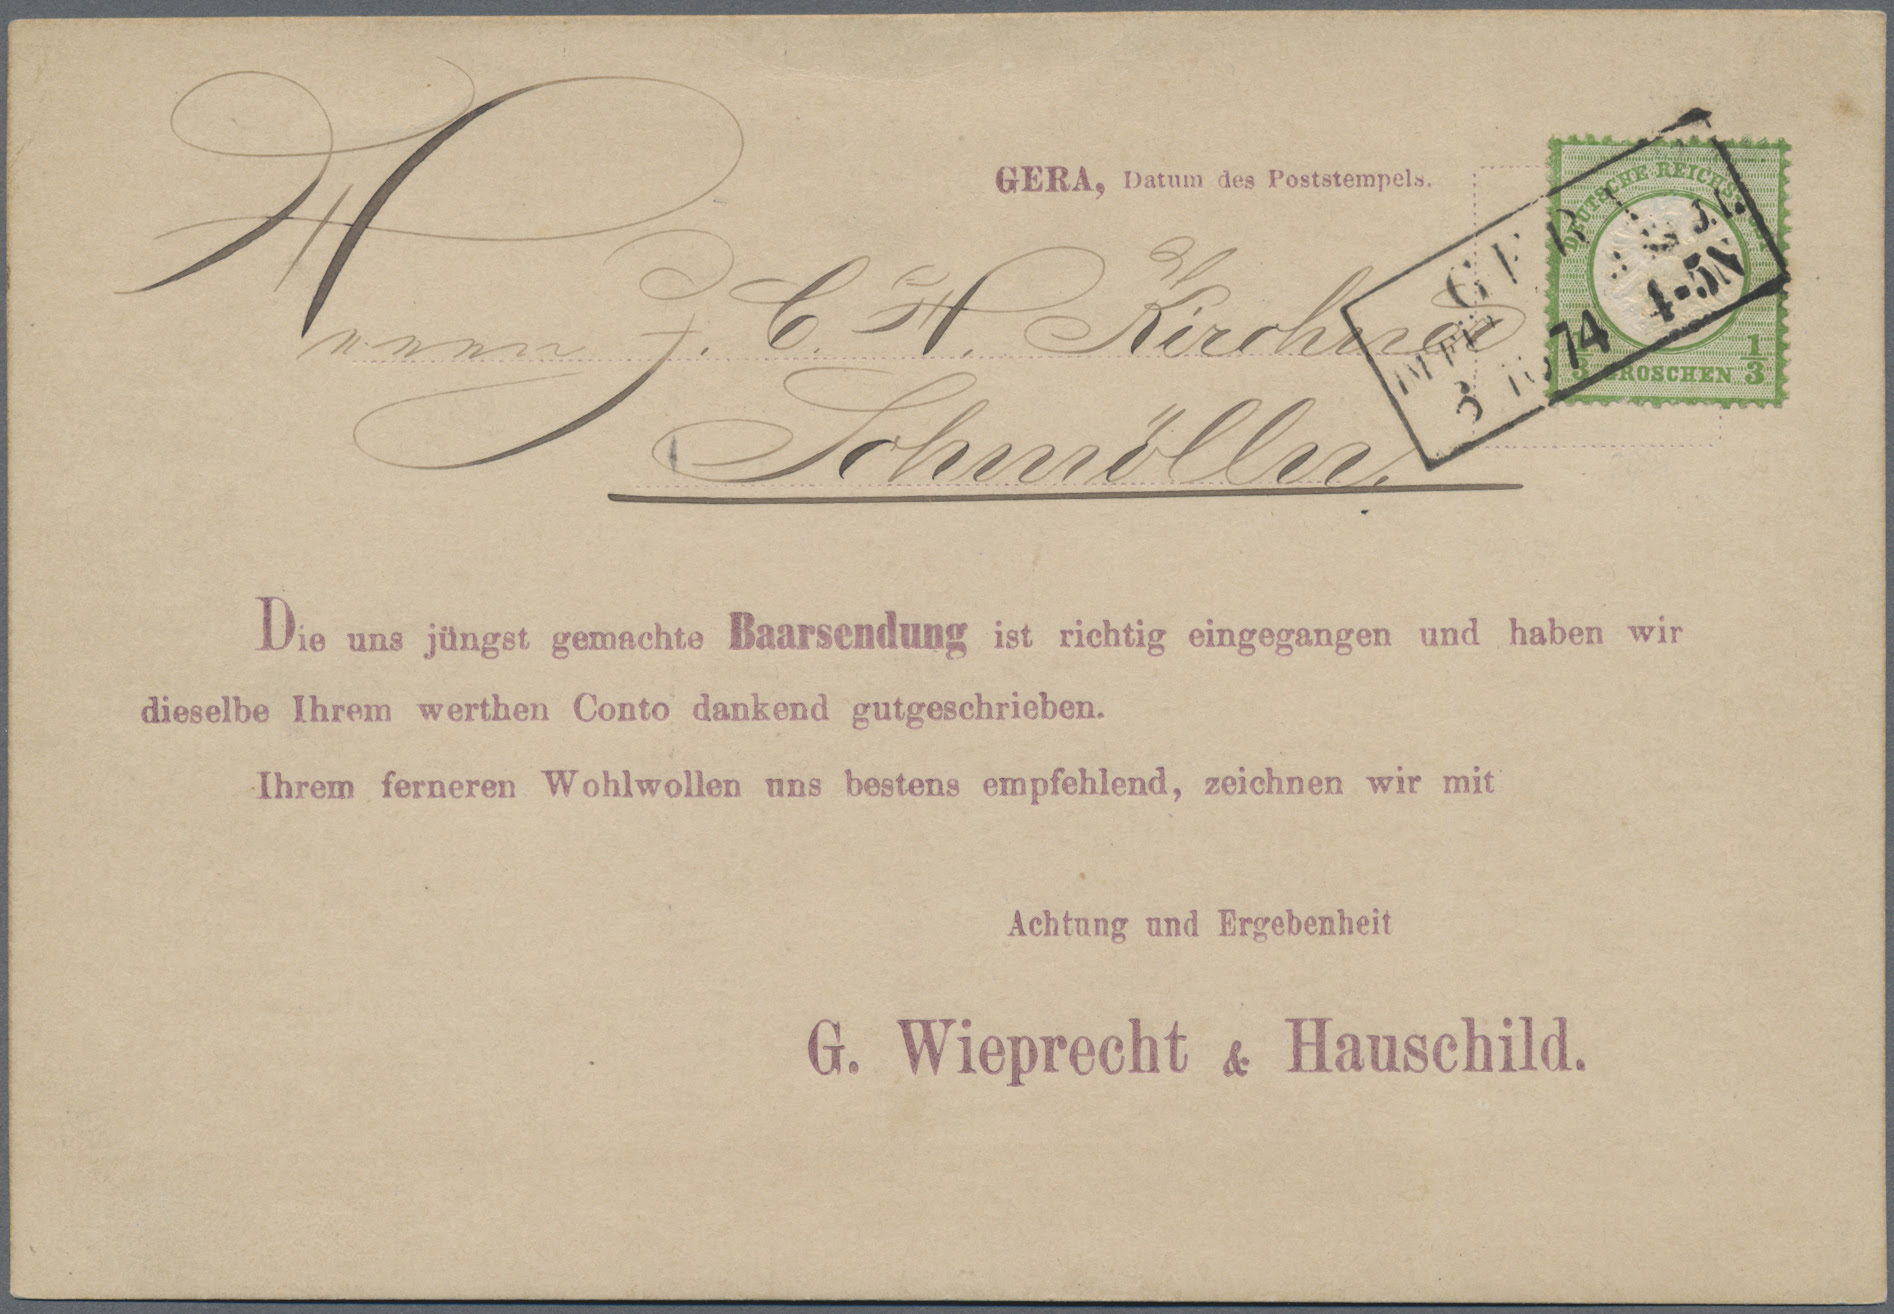 GERA, Datum des Poststempels.
DEUTSCHE REICHS
1/3 GROSCHEN 1/3
GERA
74 4-5N
Herrn J. C. H. Kirchner
Schmölln.
Die uns jüngst gemachte Baarsendung ist richtig eingegangen und haben wir
dieselbe Ihrem werthen Conto dankend gutgeschrieben.
Ihrem ferneren Wohlwollen uns bestens empfehlend, zeichnen wir mit
Achtung und Ergebenheit
G. Wieprecht & Hauschild.